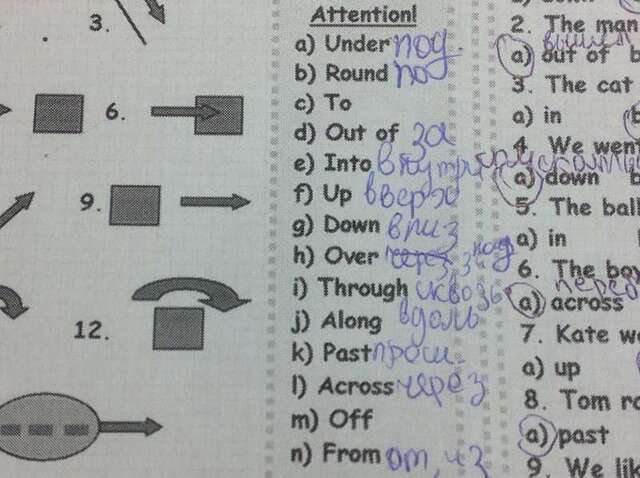 3.
6.
9.
12.
Attention!
a) Under под
b) Round по
c) To
d) Out of за
e) Into внутрь
f) Up вверх
g) Down вниз
h) Over через, над
i) Through сквозь
j) Along вдоль
k) Past прош.
l) Across через
m) Off
n) From от, из
2. The man
a) out of b
3. The cat
a) in b
4. We went
a) down b
5. The ball
a) in
6. The boy
a) across
7. Kate w
a) up
8. Tom r
a) past
9. We lik